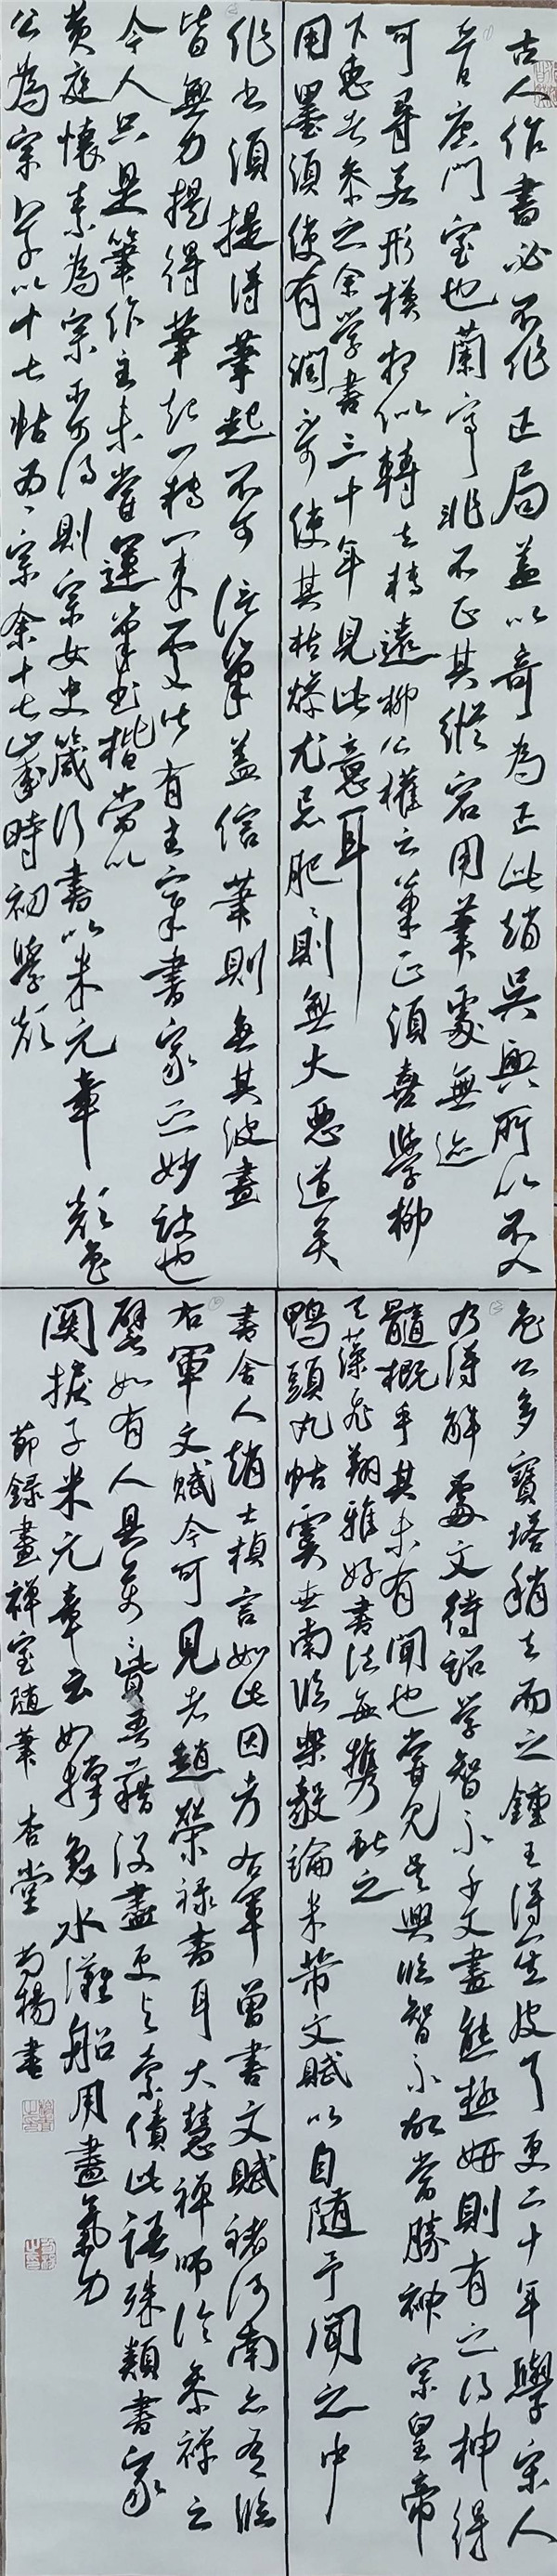 古人作書必不作正局蓋以奇為正此趙吳興所以不入
晉唐門室也蘭亭非不正其縱宕用筆處無迹
可尋若形模相似轉去轉遠柳公權云筆正須善學柳
下惠者參之余學書三十年見此意耳
用墨須使有潤不可使其枯燥尤忌肥〻則無大惡道矣
作書須提得筆起不可信筆蓋信筆則無其波畫
皆無力提得筆起一轉一束處皆有主宰書家之妙訣也
今人只是筆作主未嘗運筆書楷當以
黃庭懷素為宗不可得則宗女史箴行書以米元章顏魯
公為宗草以十七帖為〻宗余十七歲時初學顏
魯公多寶塔稍去而之鍾王得其皮耳更二十年學宋人
乃得解處文待詔學智永千文盡態極妍則有之得神得
髓概乎其未有聞也嘗見吳興臨智永故當勝神宗皇帝
天藻飛翔雅好書法每攜獻之
鴨頭丸帖虞世南臨樂毅論米芾文賦以自隨予聞之中
書舍人趙士楨言如此因考右軍曾書文賦褚河南亦有臨
右軍文賦今可見者趙榮祿書耳大慧禪師論參禪云
譬如有人具萬〻貲吾藉沒盡更與索債此語殊類書家
關捩子米元章云如撐急水灘船用盡氣力
節錄畫禪室隨筆 杏堂尚楊書